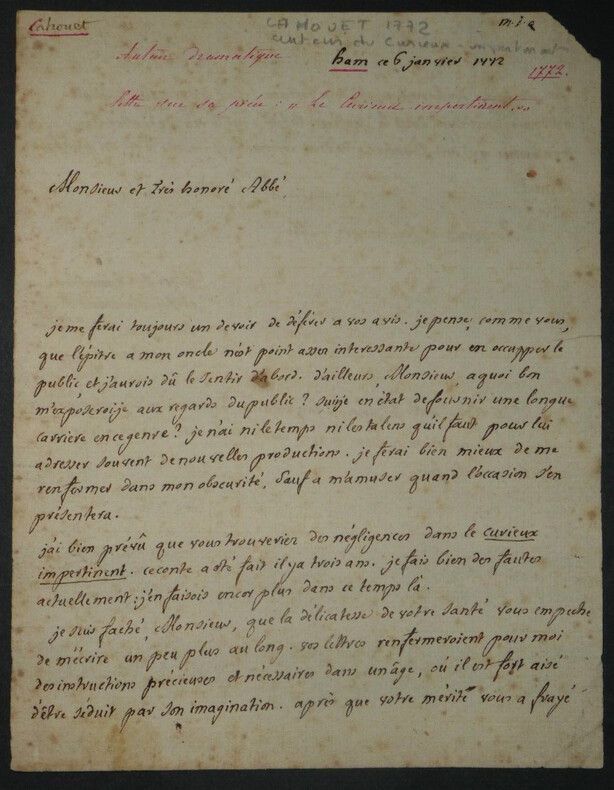 Cahouet
CAHOUET 1772
auteur du Curieux impertinent
m.j.a
Auteur dramatique
ham ce 6 janvier 1772
1772.
lettre sur sa pièce : « Le Curieux impertinent »
Monsieur et très honoré Abbé
je me ferai toujours un devoir de déférer a vos avis. je pense, comme vous,
que l'épitre a mon oncle n'est point assez interessante pour en occupper le
public et j'aurois dû le sentir d'abord. d'ailleurs, Monsieur, a quoi bon
m'exposeroije aux regards du public ? suisje en état de fournir une longue
carriere en ce genre ? je n'ai ni le temps ni les talens qu'il faut pour lui
adresser souvent de nouvelles productions. je ferai bien mieux de me
renfermer dans mon obscurité, sauf a m'amuser quand l'occasion s'en
présentera.
j'ai bien prévû que vous trouveriez des négligences dans le curieux
impertinent. ce conte a été fait il y a trois ans. je fais bien des fautes
actuellement : j'en faisois encor plus dans ce temps là.
je suis faché, Monsieur, que la délicatesse de votre santé vous empeche
de m'écrire un peu plus au long. vos lettres renfermeroient pour moi
des instructions précieuses et nécessaires dans un âge, où il est fort aisé
d'être séduit par son imagination. après que votre mérite vous a frayé